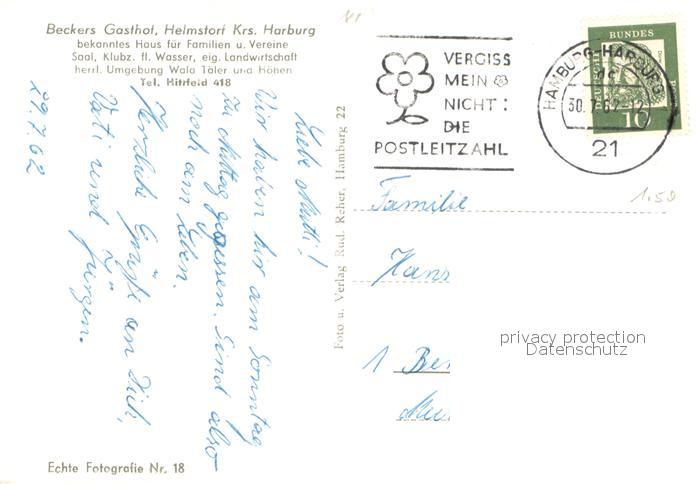 Beckers Gasthof, Helmstorf Krs. Harburg
bekanntes Haus für Familien u. Vereine
Saal, Klubz. fl. Wasser, eig. Landwirtschaft
herrl. Umgebung Wald Täler und Höhen
Tel. Hittfeld 418
29.7.62
Liebe Mutti!
Wir haben hir am Sonntag
zu Mittag gegessen. Sind also
noch am Leben.
Herzliche Grüße an Dich,
Vati und Jürgen.
Echte Fotografie Nr. 18
Foto u. Verlag Rud. Reher, Hamburg 22
VERGISS
MEIN
NICHT:
DIE
POSTLEITZAHL
HAMBURG-HARBURG
30.7.62-12
21
DEUTSCHE BUNDESPOST
10
1.50
Familie
Hans
1 Ber
privacy protection
Datenschutz